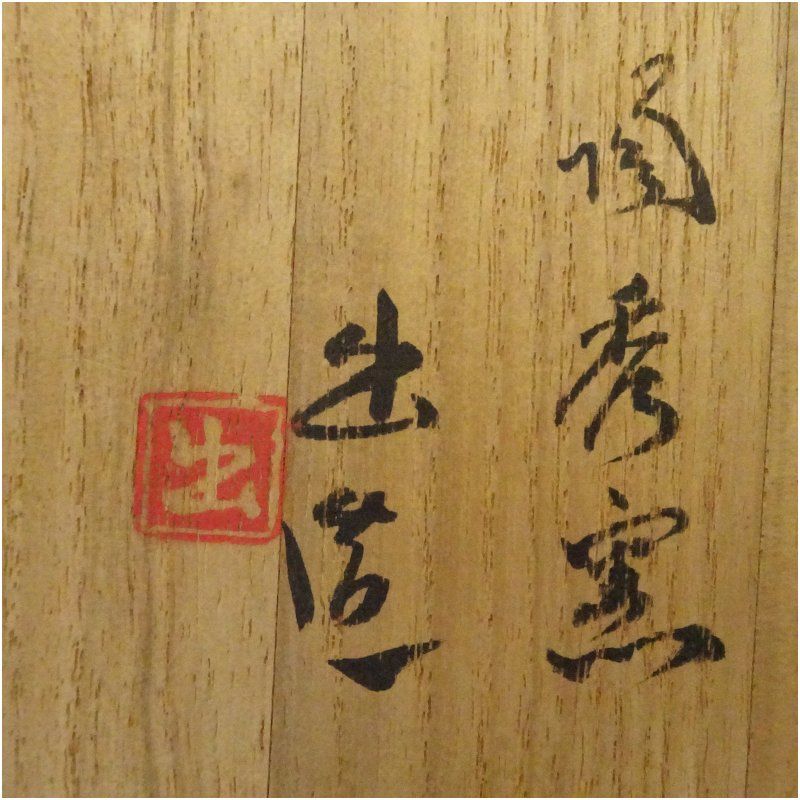 陶秀窯
出造
出